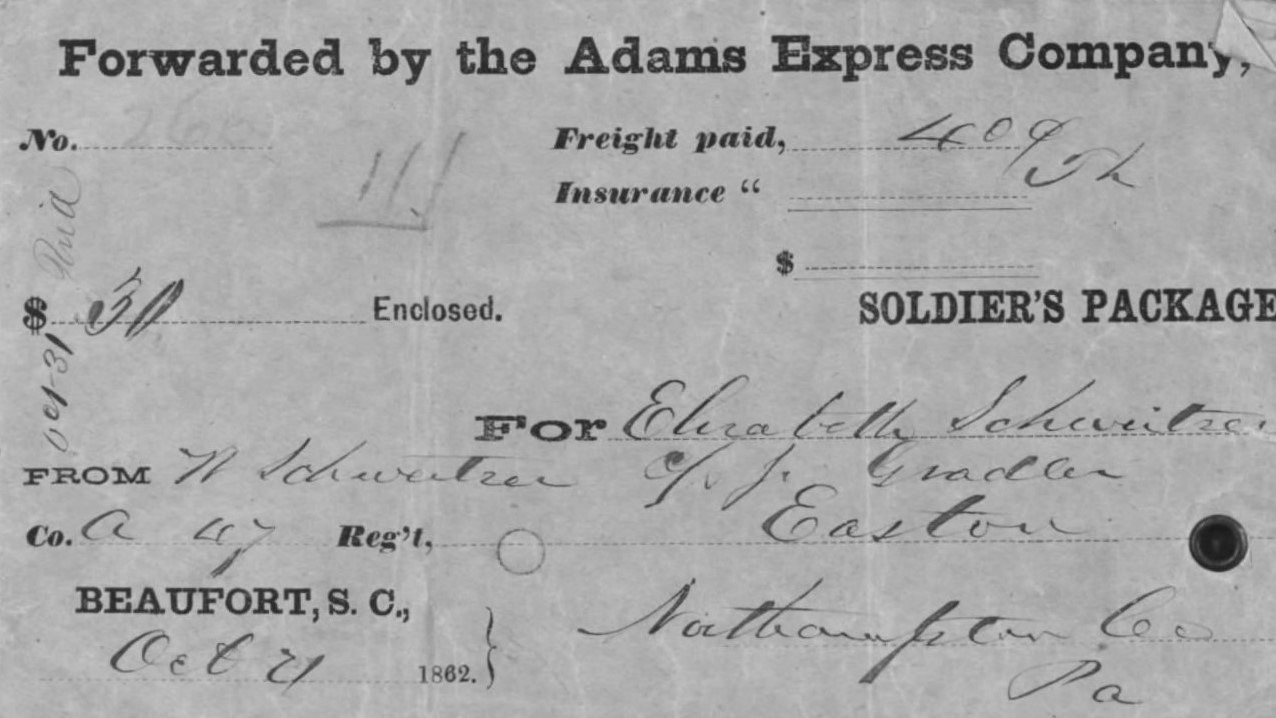 Forwarded by the Adams Express Company,
No. 260
111
Freight paid, 40¢
Insurance "
$
Paid
$ 50 Enclosed.
SOLDIER'S PACKAGE
Oct 31
For Elizabeth Schweitzer
FROM W Schweitzer
c/o J. Gradler
Co. A 47 Reg't,
Easton
BEAUFORT, S. C.,
Northampton Co
Oct 21 1862.
Pa